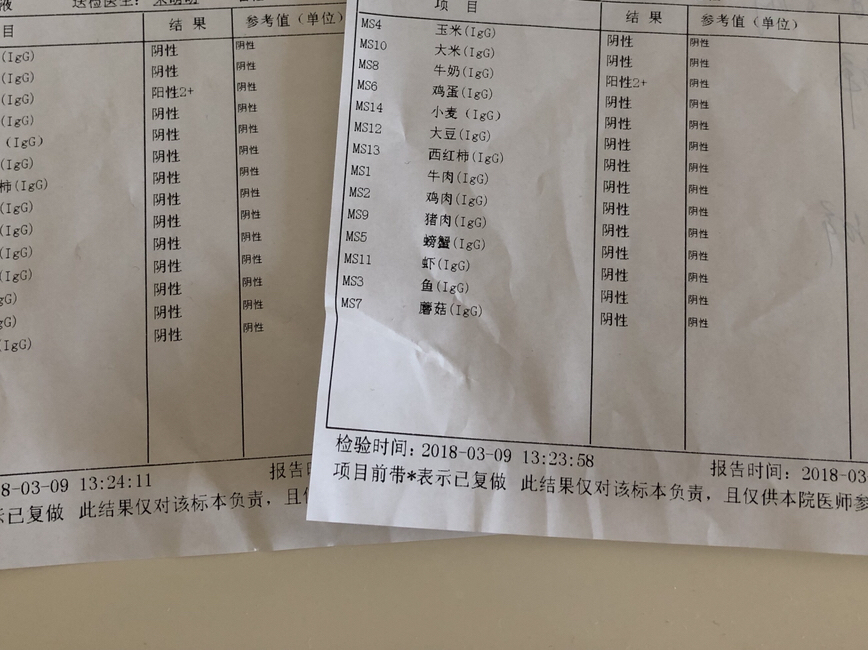 液 送检医生:
目 结 果 参考值(单位)
(IgG) 阴性 阴性
(IgG) 阴性 阴性
(IgG) 阳性2+ 阴性
(IgG) 阴性 阴性
(IgG) 阴性 阴性
(IgG) 阴性 阴性
柿(IgG) 阴性 阴性
(IgG) 阴性 阴性
(IgG) 阴性 阴性
(IgG) 阴性 阴性
(IgG) 阴性 阴性
gG) 阴性 阴性
gG) 阴性 阴性
(IgG) 阴性 阴性
8-03-09 13:24:11 报告时
示已复做 此结果仅对该标本负责，且
项 目 结 果 参考值(单位)
MS4 玉米(IgG) 阴性 阴性
MS10 大米(IgG) 阴性 阴性
MS8 牛奶(IgG) 阳性2+ 阴性
MS6 鸡蛋(IgG) 阴性 阴性
MS14 小麦(IgG) 阴性 阴性
MS12 大豆(IgG) 阴性 阴性
MS13 西红柿(IgG) 阴性 阴性
MS1 牛肉(IgG) 阴性 阴性
MS2 鸡肉(IgG) 阴性 阴性
MS9 猪肉(IgG) 阴性 阴性
MS5 螃蟹(IgG) 阴性 阴性
MS11 虾(IgG) 阴性 阴性
MS3 鱼(IgG) 阴性 阴性
MS7 蘑菇(IgG) 阴性 阴性
检验时间: 2018-03-09 13:23:58 报告时间: 2018-03
项目前带*表示已复做 此结果仅对该标本负责，且仅供本院医师参